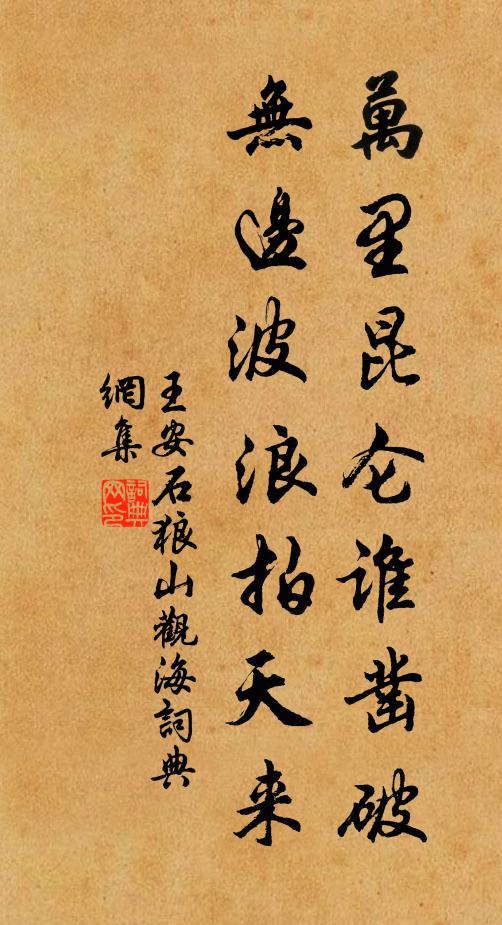 萬里昆仑谁凿破
無邊波浪拍天来
王安石狼山觀海詞典
網集
詞典
网印